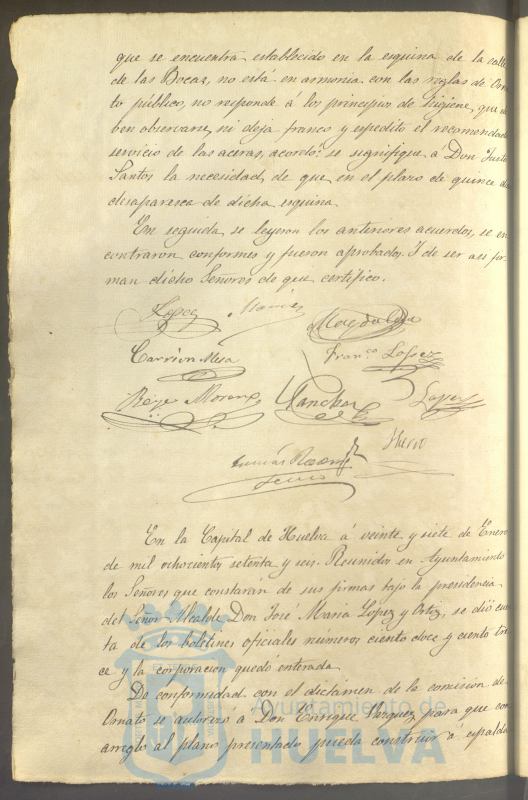 que se encuentra establecido en la esquina de la calle
de las Bocas, no está en armonia con las reglas de Orna
to público, no responde á los principios de higiene, que
ben observarse, ni deja franco y espedito el recomendado
servicio de las aceras, acordó: se signifique á Don Justo
Santos la necesidad, de que en el plazo de quince
desaparezca de dicha esquina.
En seguida se leyeron los anteriores acuerdos, se en
contraron conformes y fueron aprobados. Y de ser asi fir
man dichos Señores de que certifico.
Lopez
Carrion Mesa
Franco Lopez
Moreno
Sanchez
Lopez
En la Capital de Huelva á veinte y siete de Enero
de mil ochocientos setenta y seis. Reunidos en Ayuntamiento
los Señores que constarán de sus firmas bajo la presidencia
del Señor Alcalde Don José Maria Lopez y Ortiz, se dió cuen
ta de los boletines oficiales numeros ciento doce y ciento tre
ce y la corporacion quedó enterada.
De conformidad con el dictámen de la comisión de
Ornato se autorizó á Don Enrique Vazquez para que con
arreglo al plano presentado pueda construir á espalda
Ayuntamiento de
HUELVA